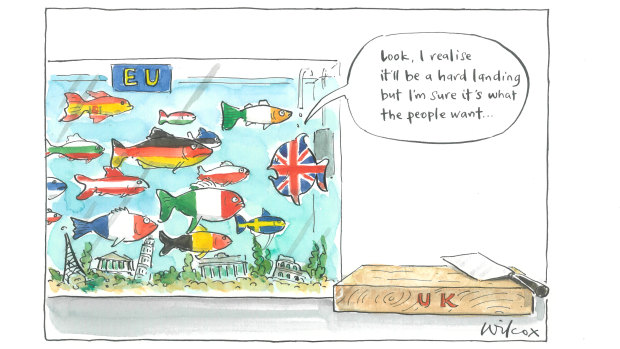 EU
Look, I realise
it'll be a hard landing
but I'm sure it's what
the people want...
UK
Wilcox